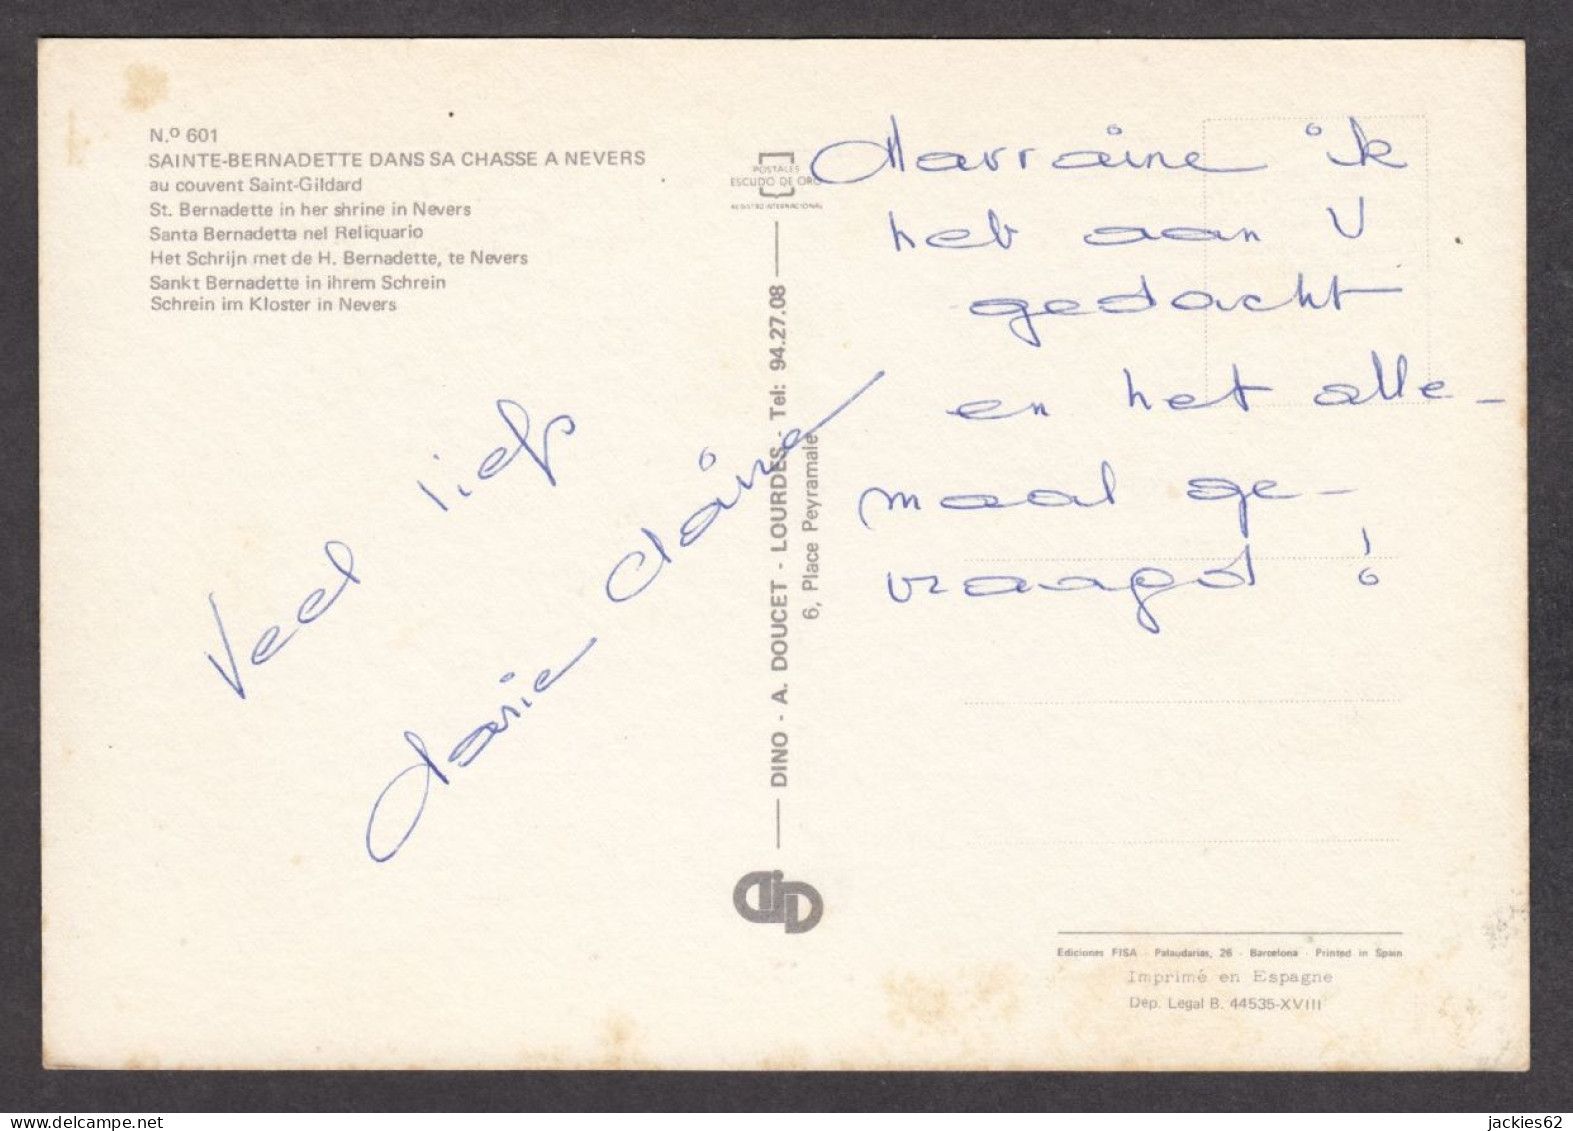 N.º 601
SAINTE-BERNADETTE DANS SA CHASSE A NEVERS
au couvent Saint-Gildard
St. Bernadette in her shrine in Nevers
Santa Bernadetta nel Reliquario
Het Schrijn met de H. Bernadette, te Nevers
Sankt Bernadette in ihrem Schrein
Schrein im Kloster in Nevers
Veel liefs
Marie Claire
POSTALES
ESCUDO DE ORO
REGISTRO INTERNACIONAL
DINO - A. DOUCET - LOURDES - Tel: 94.27.08
6, Place Peyramale
Marraine ik
heb aan U
gedacht
en het alle-
maal ge-
vraagd !
Ediciones FISA - Palaudarias, 26 - Barcelona - Printed in Spain
Imprimé en Espagne
Dep. Legal B. 44535-XVIII
jackies62